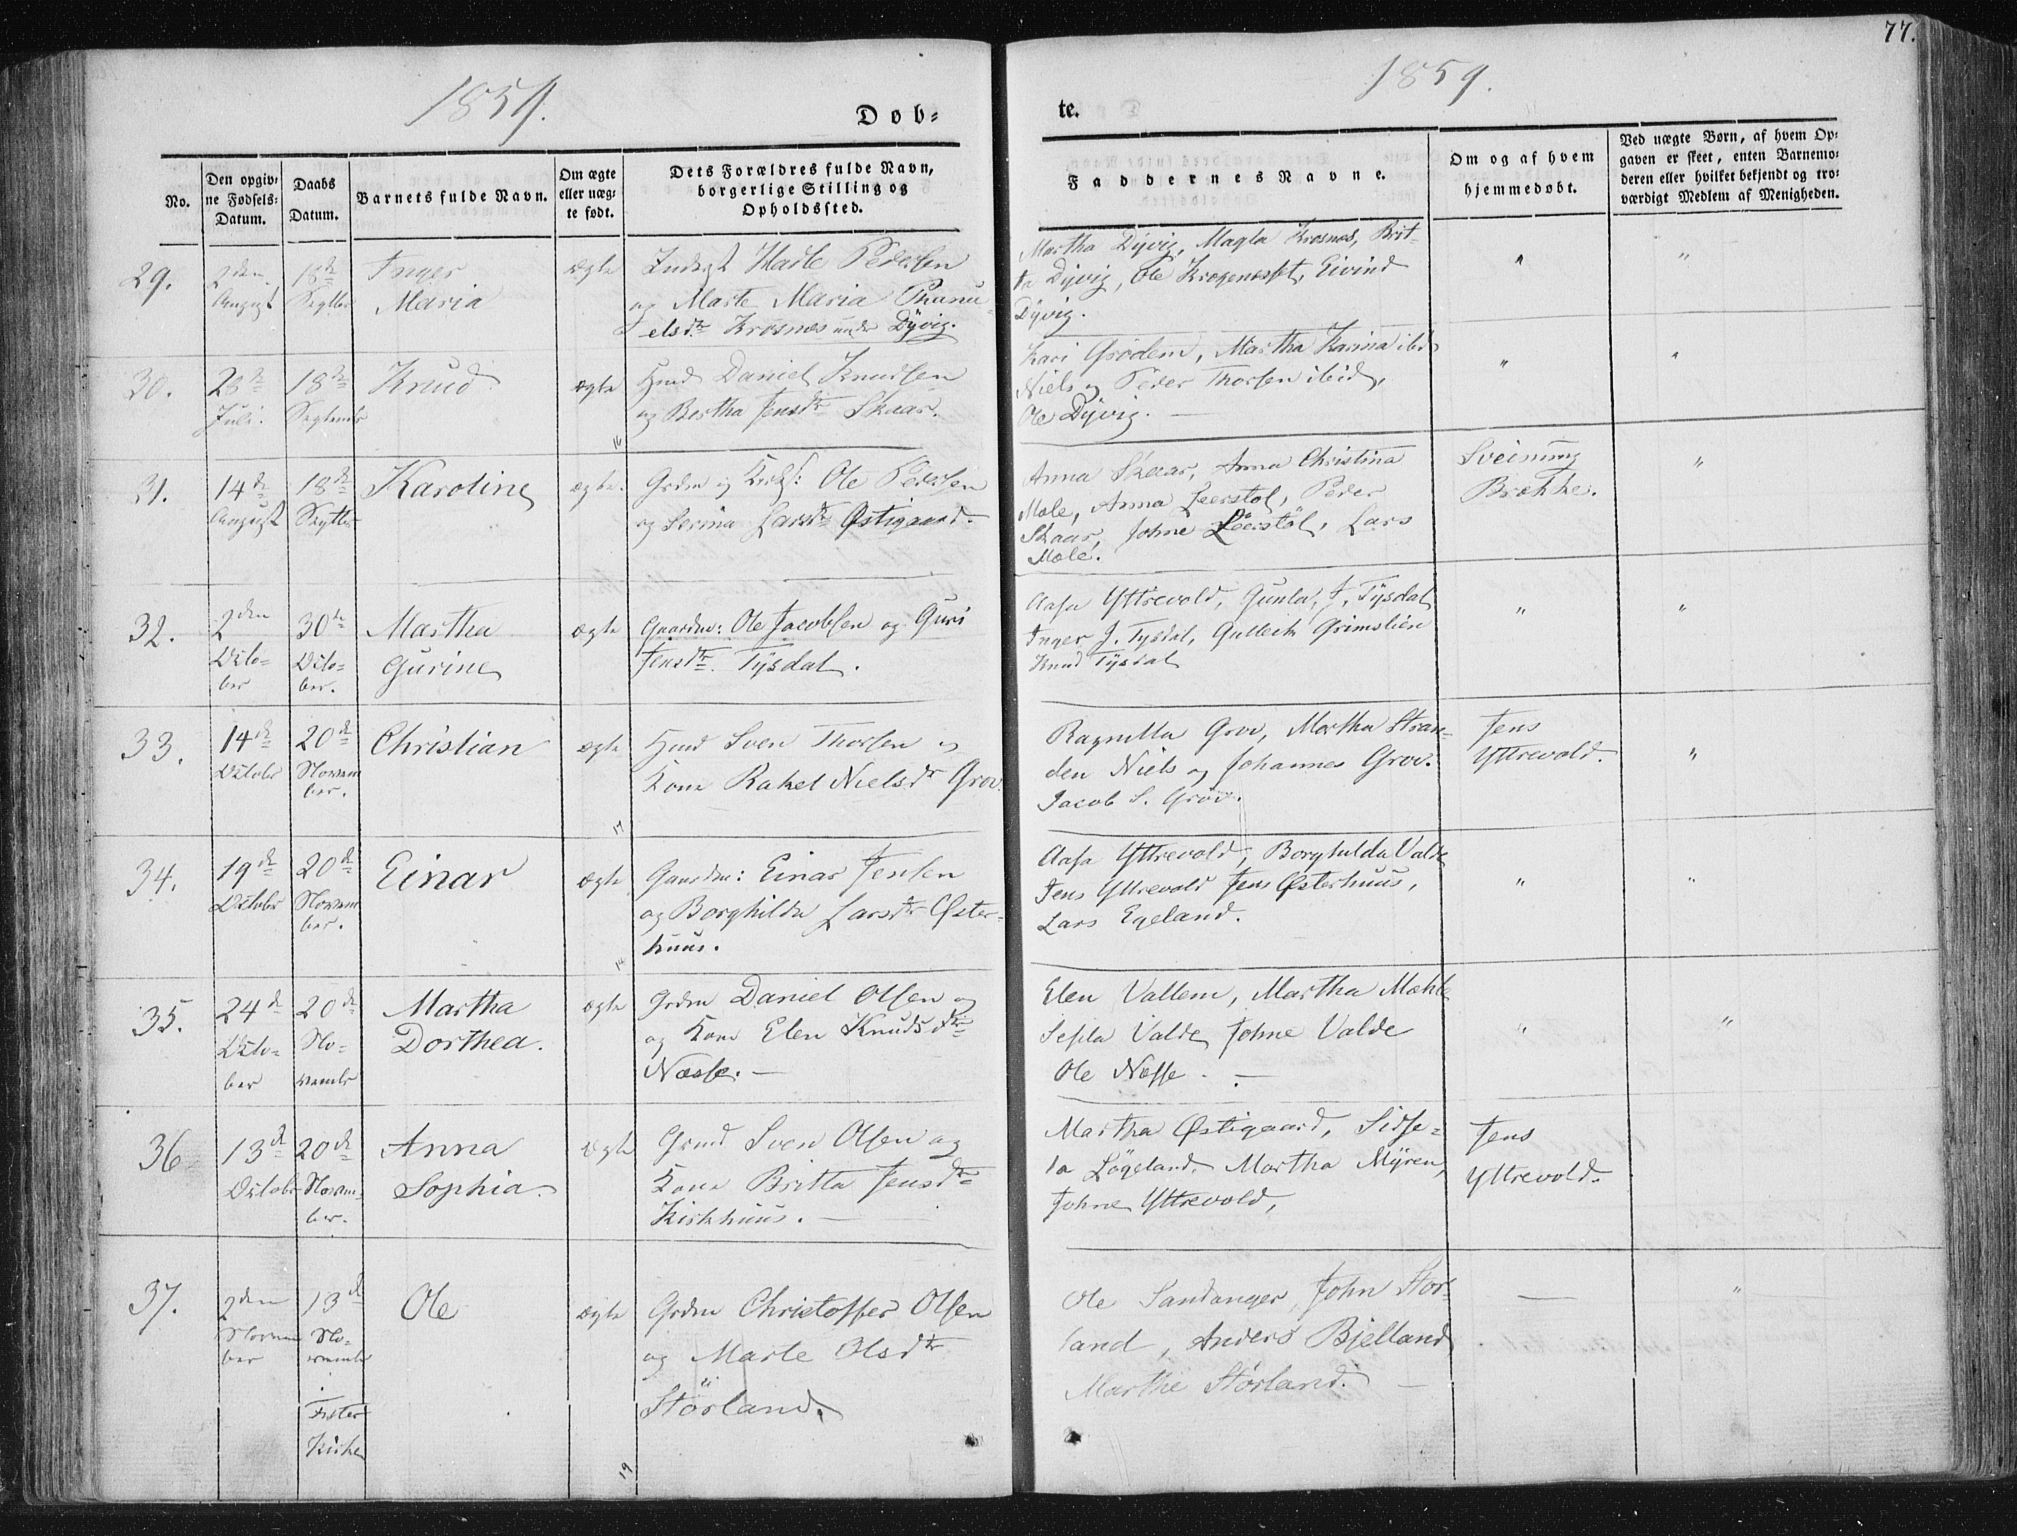 77.
1859.
1859.
Døb-
te.
No.
Den opgiv-
ne Fødsels-
Datum.
Daabs
Datum.
Barnets fulde Navn.
Om ægte
eller uæg-
te født.
Dets Forældres fulde Navn,
borgerlige Stilling og
Opholdssted.
Faddernes Navne.
Om og af hvem
hjemmedøbt.
Ved uægte Børn, af hvem Op-
gaven er skeet, enten Barnemo-
deren eller hvilket bekjendt og tro-
værdigt Medlem af Menigheden.
29.
2den
August
18de
Septbr
Inger
Maria
ægte
Pedersen
og Marte Maria
elsdtr Krosnæs under Dÿvig.
Martha Dÿvig, Magla Krosnæs, Brit-
ta Dÿvig, Ole Krogenæsset, Eivind
Dÿvig.
"
"
30.
28de
Juli.
18de
Septembr
Knud
ægte
Hmd Daniel Knudsen
og Bertha Jensdtr Skaar.
Kari Grødem, Martha Karina ibid
Niels og Peder Thorsen ibid,
Ole Dÿvig. —
"
"
16
31.
14de
August
18de
Septbr
Karoline
ægte.
Grdm og Ole Pedersen
og Serina Larsdtr Østigaard.
Anna Skaar, Anna Christina
Mæle, Anna Leerstøl, Peder
Skaar, Johne Leerstøl, Lars
Mæle.
Sveinung
Brække.
"
32.
2den
Octo-
ber
30te
Octo-
ber.
Martha
Gurine
ægte
Gaardm: Ole Jacobsen og Guri
Jensdtr. Tÿsdal.
Aasa Yttrevold, Gunla, J. Tÿsdal
Inger J. Tysdal, Gulleck Grimslien
Knud Tÿsdal
"
"
33.
14de
Octobr
20de
Novem
ber.
Christian
ægte
Hmd Sven Thorsen og
Kone Rakel Nielsdtr Grov.
Ragnilla Grov, Martha Stran-
den Niels og Johannes Grov.
Jacob S. Grov.
Jens
Yttrevold.
"
17
34.
19de
Octobr
20de
Novem
ber.
Einar
ægte
Gaardm: Einar Jensen
og Borghilda Larsdtr Øster-
huus.
Aasa Yttrevold, Borghilda Valde
Jens Yttrevold Jens Østerhuus,
Lars Egeland.
"
"
35.
24de
Octo-
ber
20de
No-
vembr
Martha
Dorthea.
ægte
Grdm Daniel Olsen og
og Kone Elen Knudsdtr
Næsse. —
Elen Vallem, Martha Mæhle
Valde Johne Valde
Ole Næsse - —
"
"
36
13de
Octobr
20de
Novem-
ber.
Anna
Sophia.
ægte
Grmd Sven Olsen og
Kone Britta Jensdtr
Kirkhuus. —
Martha Østigaard, Sidse-
la Løgeland. Martha Mÿren,
Johne Yttrevold,
Jens
Yttrevold.
37.
2den
Novem
ber
13de
No-
vembr
Fister
Kirke
Ole
ægte
Grdm Christoffer Olsen
og Marte Olsdtr
Størland.
Ole Sandanger, John Stør-
land, Anders Bjelland
Marthe Størland. —
—
"
19